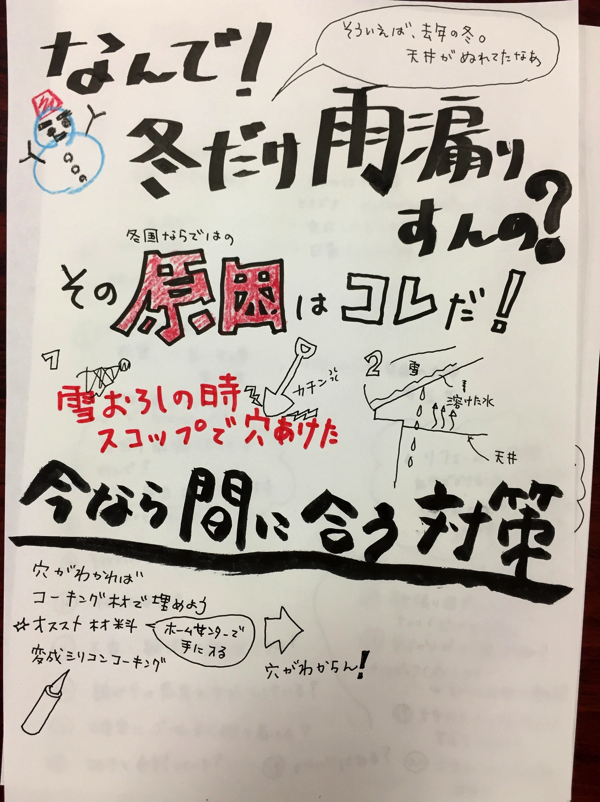 なんで!
そういえば、去年の冬。
天井がぬれてたなあ
冬だけ雨漏り
すんの?
冬国ならではの
その原因はコレだ!
1
雪おろしの時
スコップで穴あけた
カチン
2
雪
溶けた水
天井
今なら間に合う対策
穴がわかれば
コーキング材で埋めよう
☆オススト材料
ホームセンターで
手に入る
変成シリコンコーキング
穴がわからん!